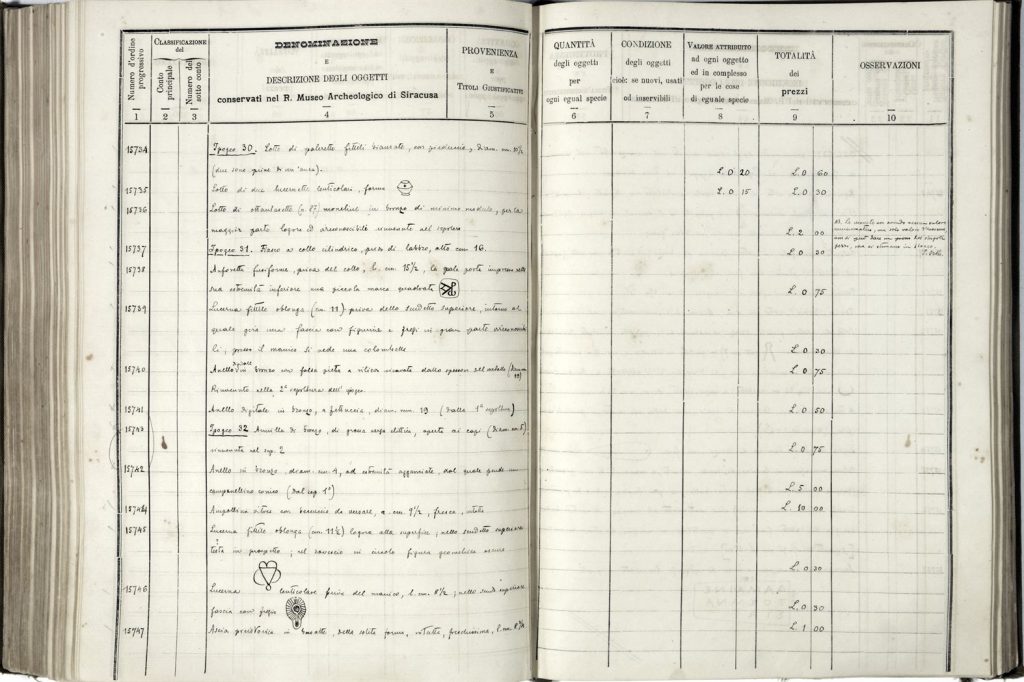 Numero d'ordine progressivo
1
CLASSIFICAZIONE
del
Conto principale
2
Numero del sotto conto
3
DENOMINAZIONE
E
DESCRIZIONE DEGLI OGGETTI
conservati nel R. Museo Archeologico di Siracusa
4
PROVENIENZA
E
TITOLI GIUSTIFICATIVI
5
QUANTITÀ
degli oggetti
per
ogni egual specie
6
CONDIZIONE
degli oggetti
cioè: se nuovi, usati
od inservibili
7
VALORE ATTRIBUITO
ad ogni oggetto
ed in complesso
per le cose
di eguale specie
8
TOTALITÀ
dei
prezzi
9
OSSERVAZIONI
10
15734 Ipogeo 30. Lotto di fittili con diam. cm. 10½
(due sono prive di un'ansa). L. 0 20 L. 0 60
15735 Lotto di due lucernette lenticolari, forma L. 0 15 L. 0 30
15736 Lotto di (n. 87) in bronzo di minimo modulo, per la
maggior parte logore ed irriconoscibili rinvenute nel sepolcro L. 2 00
P. Orsi.
15737 Ipogeo 31. Fiasco a collo cilindrico, privo di labbro, alto cm 16. L. 0 30
15738 Anforetta fusiforme, priva del collo, l. cm. 15½, la quale porta impressa nella
sua estremità inferiore una piccola marca quadrata L. 0 75
15739 Lucerna fittile oblonga (cm. 11) priva dello scudetto superiore, intorno al
quale gira una fascia con figurine e fregi in gran parte irriconoscibi
li, presso il manico si vede una colombella L. 0 30
15740 Anello digitale in bronzo con falsa pietra a rilievo ricavata dallo spessore del metallo (diam. mm 19)
Rinvenuto nella 2ª sepoltura dell'ipogeo L. 0 75
15741 Anello digitale in bronzo, a fettuccia, diam. mm. 19 (dalla 1ª sepoltura) L. 0 50
15743 Ipogeo 32 Armilla di bronzo, di grossa verga ellittica, aperta ai capi (diam. cm 5)
rinvenuta nel sep. 2 L. 0 75
15742 Anello in bronzo, diam. cm. 4, ad estremità agganciate, dal quale pende un
campanellino conico (dal sep. 1º) L. 5 00
15744 Ampollina vitrea con beccuccio da versare, a. cm 9½, fresca, intatta L. 10 00
15745 Lucerna fittile oblonga (cm. 11½) logora alla superficie; nello scudetto superiore
testa in prospetto; nel rovescio in circolo figura geometrica oscura L. 0 30
15746 Lucerna lenticolare priva del manico, l. cm. 8½; nello scudo superiore
fascia con fregio L. 0 30
15747 Ascia preistorica in basalte, della solita forma, intatta, l. cm. L. 1 00